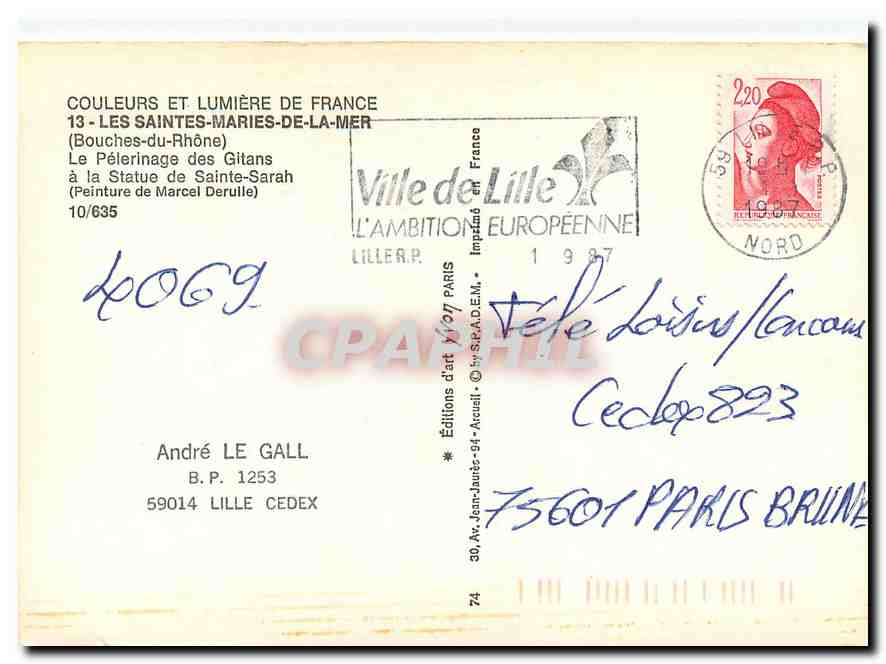 COULEURS ET LUMIÈRE DE FRANCE
13 - LES SAINTES-MARIES-DE-LA-MER
(Bouches-du-Rhône)
Le Pélerinage des Gitans
à la Statue de Sainte-Sarah
(Peinture de Marcel Derulle)
10/635
Ville de Lille
L'AMBITION EUROPÉENNE
LILLE R.P. 1 9 87
2,20
POSTES
RÉPUBLIQUE FRANÇAISE
59 R.P.
1987
NORD
4069
CPAPHIL
Télé Loisirs/Concours
Cedex 823
75601 PARIS BRUNE
André LE GALL
B.P. 1253
59014 LILLE CEDEX
✷ Éditions d'art yvon PARIS
74 30, Av. Jean-Jaurès - 94 - Arcueil • © by S.P.A.D.E.M. • Imprimé en France